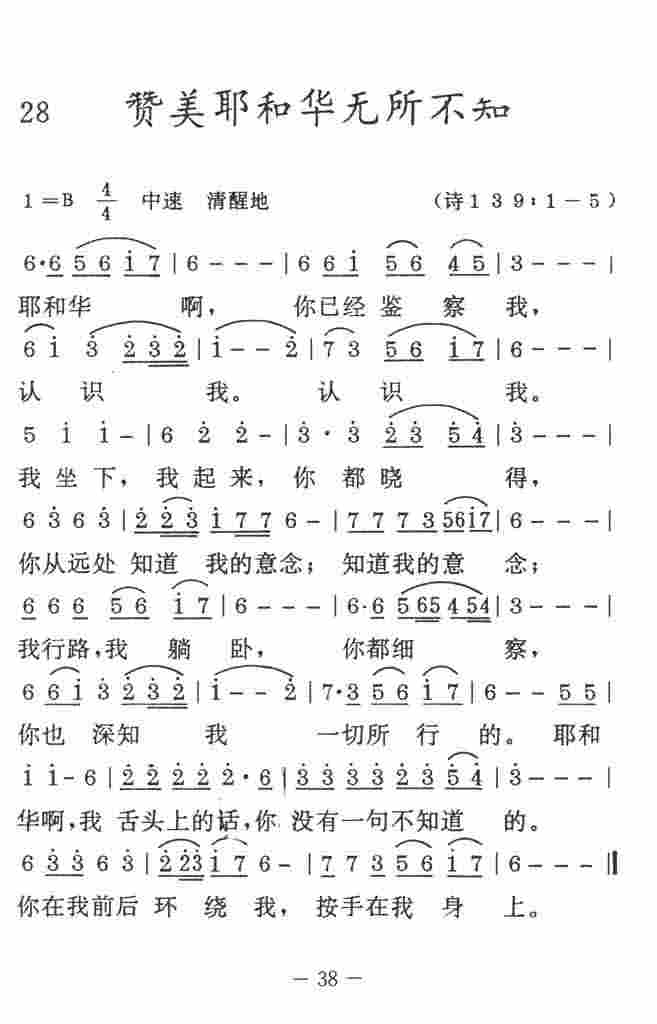 28 赞美耶和华无所不知
1=B 4/4 中速 清醒地 (诗139:1-5)
6·6 5 6 i 7 | 6 - - - | 6 6 i 5 6 4 5 | 3 - - - |
耶和华 啊, 你已经鉴 察 我,
6 i 3̇ 2̇ 3̇ 2̇ | i - - 2̇ | 7 3 5 6 i 7 | 6 - - - |
认 识 我。 认 识 我。
5 i i - | 6 2̇ 2̇ - | 3̇ · 3̇ 2̇ 3̇ 5̇ 4̇ | 3̇ - - - |
我 坐 下, 我 起 来, 你 都 晓 得,
6 3̇ 6 3̇ | 2̇ 2̇ 3̇ i 7 7 6 - | 7 7 7 3 5 6 i 7 | 6 - - - |
你从远处 知道 我的意念; 知道我的意 念;
6 6 6 5 6 i 7 | 6 - - - | 6·6 5 6 5 4 5 4 | 3 - - - |
我行路,我 躺 卧, 你都细 察,
6 6 i 3̇ 2̇ 3̇ 2̇ | i - - 2̇ | 7·3 5 6 i 7 | 6 - - 5 5 |
你也 深知 我 一切所 行 的。 耶和
i i - 6 | 2̇ 2̇ 2̇ 2̇ 2̇·6 | 3̇ 3̇ 3̇ 3̇ 2̇ 3̇ 5̇ 4̇ | 3̇ - - - |
华啊,我 舌头上的话,你 没有一句不知道 的。
6 3̇ 3̇ 6 3̇ | 2̇ 2̇ 3̇ i 7 6 - | 7 7 3 5 6 i 7 | 6 - - - ‖
你在我前后 环 绕 我, 按手在我 身 上。
— 38 —